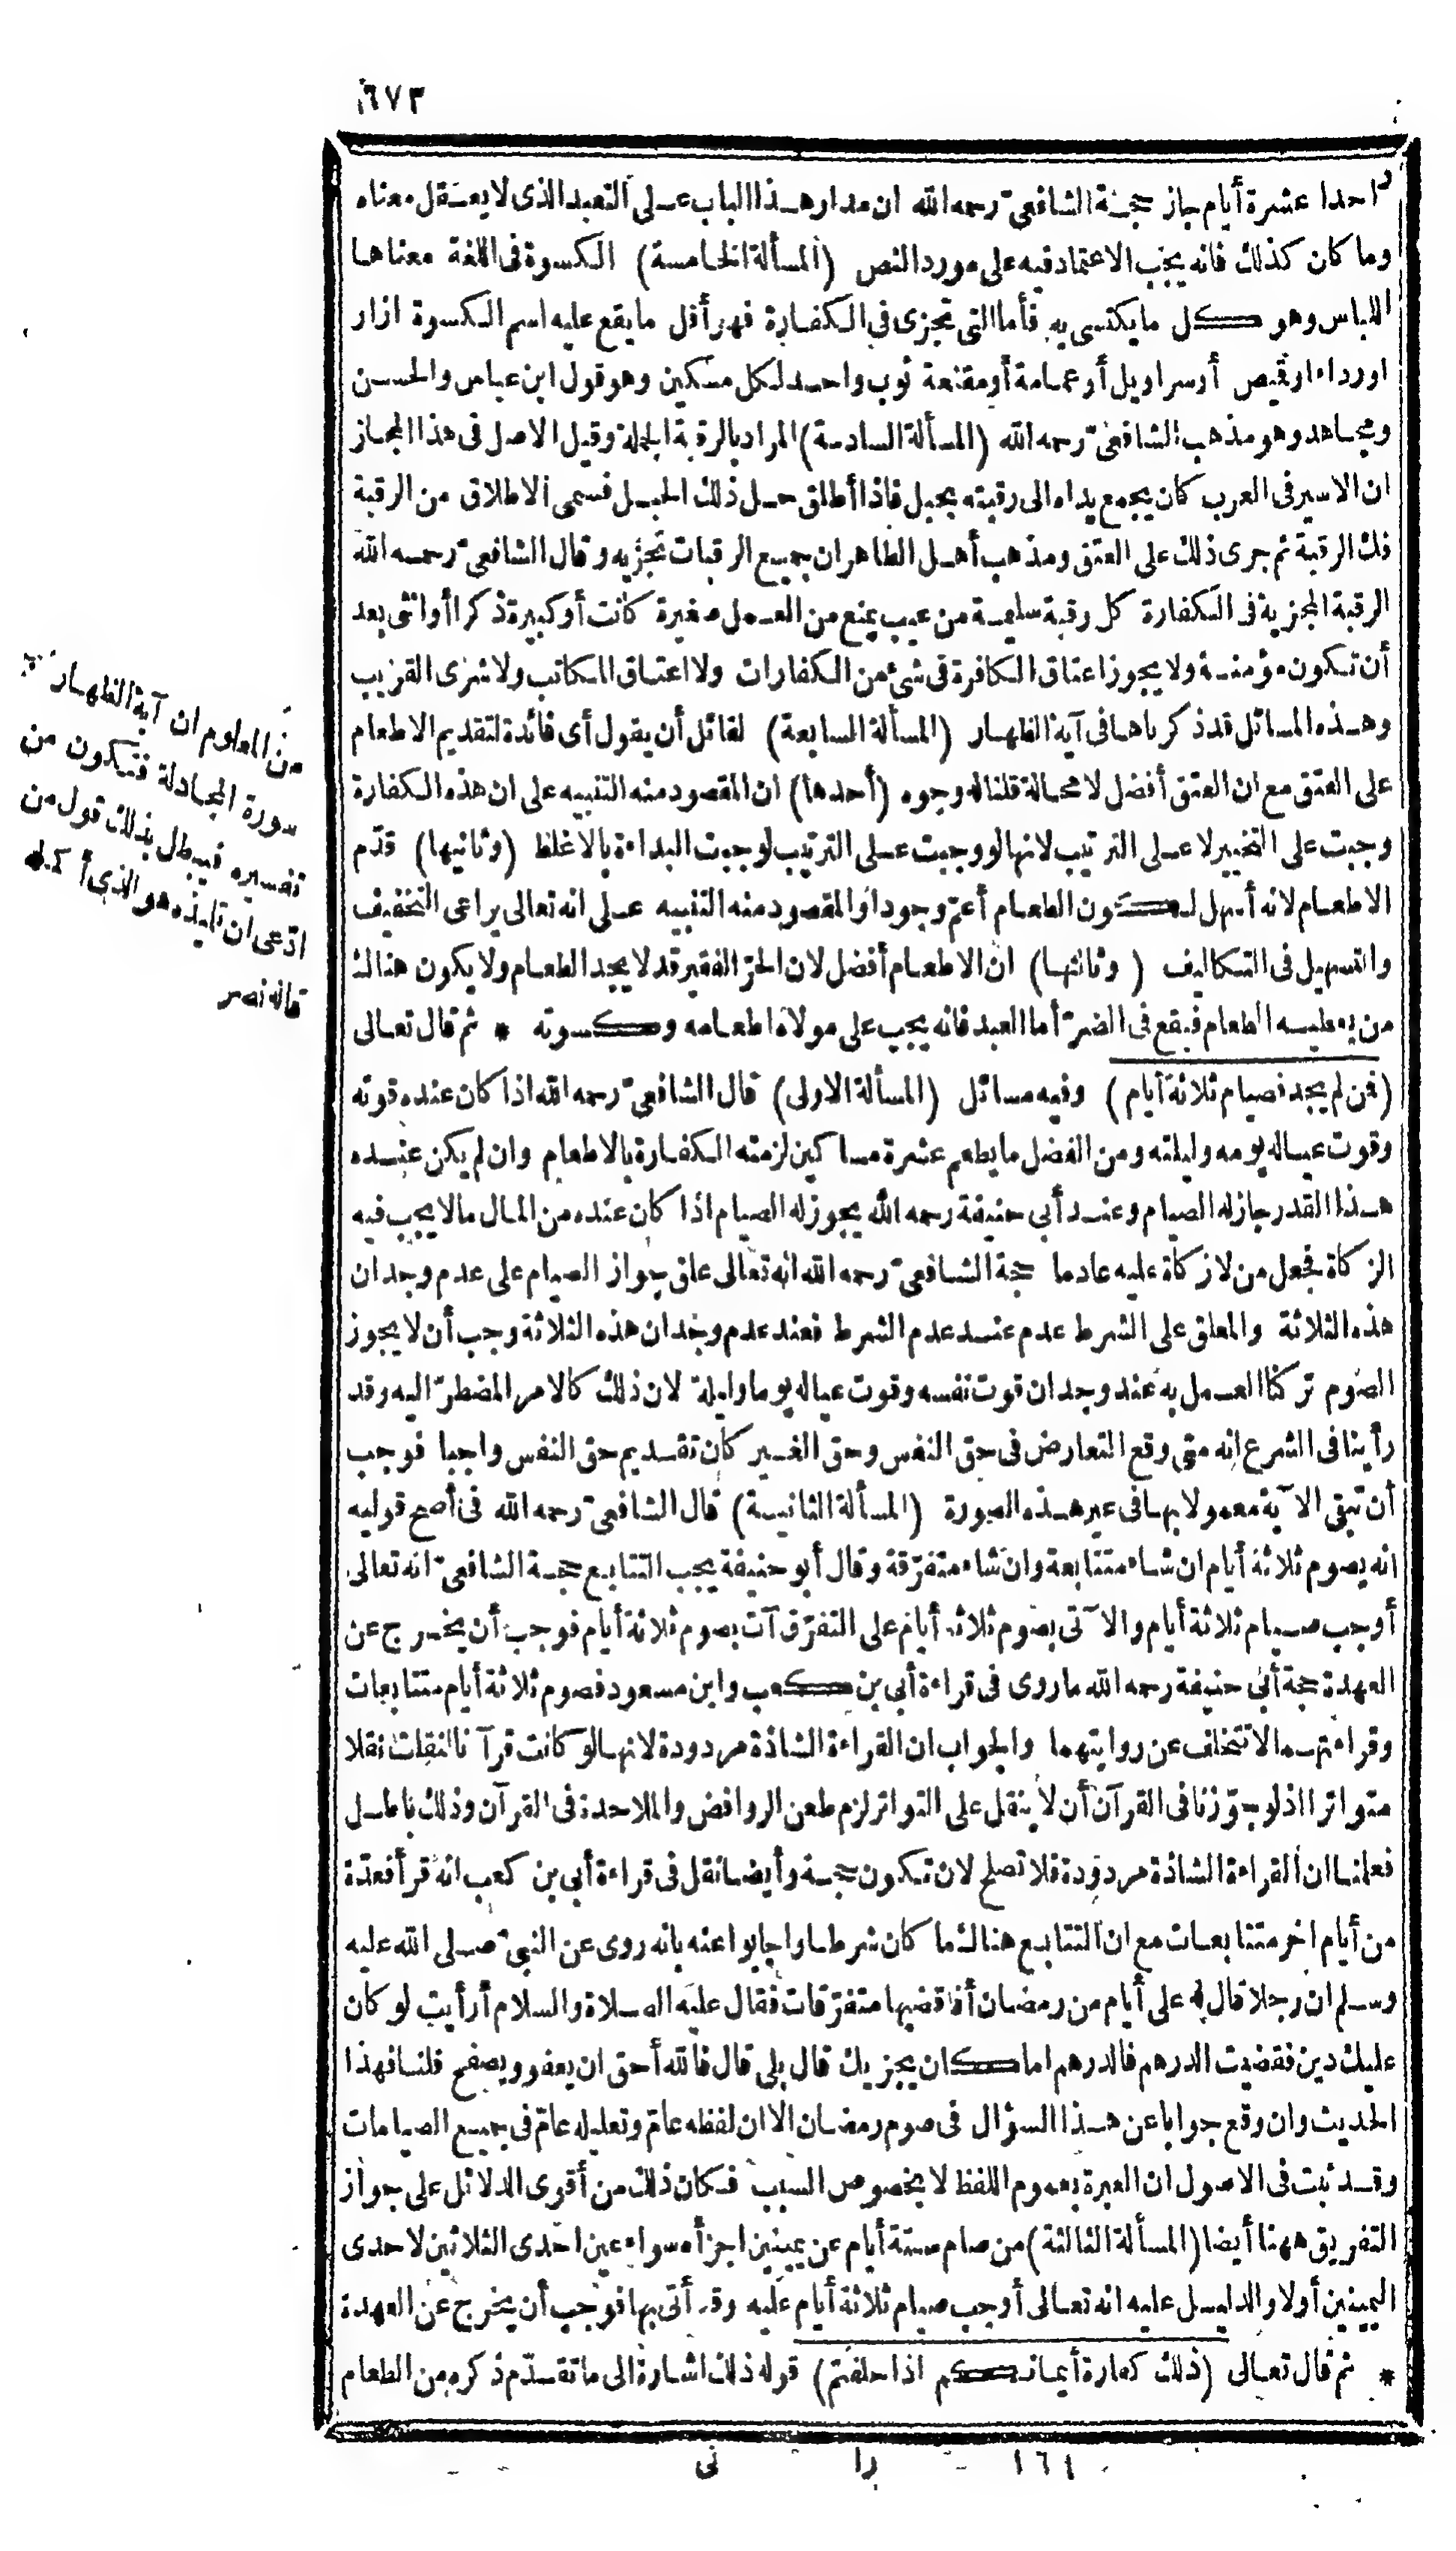 ٦٧٣
احدا عشرة أيام جاز حجة الشافعى رحمه الله ان مدار هذا الباب على التعبد الذى لا يعقل معناه
وما كان كذلك فانه يجب الاعتماد فيه على مورد النص (المسألة الخامسة) الكسوة فى اللغة معناها
اللباس وهو كل ما يكتسى به فأما التى تجزى فى الكفارة فهو أقل ما يقع عليه اسم الكسوة ازار
اورداء اوقميص أوسراويل أوعمامة أومقنعة ثوب واحد لكل مسكين وهو قول ابن عباس والحسن
ومجاهد وهو مذهب الشافعى رحمه الله (المسألة السادسة) المراد بالرقبة الجملة وقيل الاصل فى هذا المجاز
ان الاسير فى العرب كان يجمع يداه الى رقبته بحبل فاذا أطلق حل ذلك الحبل فسمى الاطلاق من الرقبة
فك الرقبة ثم جرى ذلك على العتق ومذهب أهل الظاهر ان جميع الرقبات تجزيه وقال الشافعى رحمه الله
الرقبة المجزية فى الكفارة كل رقبة سليمة من عيب يمنع من العمل صغيرة كانت أو كبيرة ذكرا أو انثى بعد
أن تكون مؤمنة ولا يجوز اعتاق الكافرة فى شئ من الكفارات ولا اعتاق المكاتب ولا شرى القريب
وهذه المسائل قد ذكرناها فى آية الظهار (المسألة السابعة) لقائل أن يقول أى فائدة لتقديم الاطعام
على العتق مع ان العتق أفضل لا محالة قلنا له وجوه (أحدها) ان المقصود منه التنبيه على ان هذه الكفارة
وجبت على التخيير لا على الترتيب لانها لو وجبت على الترتيب لوجبت البداءة بالاغلظ (وثانيها) قدّم
الاطعام لانه أسهل لكون الطعام أعمّ وجودا والمقصود منه التنبيه على انه تعالى يراعى التخفيف
والتسهيل فى التكاليف (وثالثها) ان الاطعام أفضل لان الحرّ الفقير قد لا يجد الطعام ولا يكون هناك
من يعطيه الطعام فيقع فى الضرّ أما العبد فانه يجب على مولاه اطعامه وكسوته * ثم قال تعالى
(فمن لم يجد فصيام ثلاثة أيام) وفيه مسائل (المسألة الاولى) قال الشافعى رحمه الله اذا كان عنده قوته
وقوت عياله يومه وليلته ومن الفضل ما يطعم عشرة مساكين لزمته الكفارة بالاطعام وان لم يكن عنده
هذا القدر جاز له الصيام وعند أبى حنيفة رحمه الله يجوز له الصيام اذا كان عنده من المال ما لا يجب فيه
الزكاة فجعل من لا زكاة عليه عادما حجة الشافعى رحمه الله انه تعالى علق جواز الصيام على عدم وجدان
هذه الثلاثة والمعلق على الشرط عدم عند عدم الشرط فعند عدم وجدان هذه الثلاثة وجب أن لا يجوز
الصوم تركنا العمل به عند وجدان قوت نفسه وقوت عياله يوما وليلة لان ذلك كالامر المضطرّ اليه وقد
رأينا فى الشرع انه متى وقع التعارض فى حق النفس وحق الغير كان تقديم حق النفس واجبا فوجب
أن تبقى الآية معمولا بها فى غير هذه الصورة (المسألة الثانية) قال الشافعى رحمه الله فى أصح قوليه
انه يصوم ثلاثة أيام ان شاء متتابعة وان شاء متفرّقة وقال أبو حنيفة يجب التتابع حجة الشافعى انه تعالى
أوجب صيام ثلاثة أيام والآتى بصوم ثلاثة أيام على التفرّق آت بصوم ثلاثة أيام فوجب أن يخرج عن
العهدة حجة أبى حنيفة رحمه الله ما روى فى قراءة أبى بن كعب وابن مسعود فصوم ثلاثة أيام متتابعات
وقراءتهما لا تتخلف عن روايتهما والجواب ان القراءة الشاذة مردودة لانها لو كانت قرآنا لنقلت نقلا
متواترا اذ لو جوّزنا فى القرآن أن لا ينقل على التواتر لزم طعن الروافض والملاحدة فى القرآن وذلك باطل
فعلمنا ان القراءة الشاذة مردودة فلا تصلح لان تكون حجة وأيضا نقل فى قراءة أبى بن كعب انه قرأ فعدّة
من أيام اخر متتابعات مع ان التتابع هناك ما كان شرطا واجابوا عنه بانه روى عن النبى صلى الله عليه
وسلم ان رجلا قال له على أيام من رمضان أفاقضيها متفرّقات فقال عليه الصلاة والسلام أرأيت لو كان
عليك دين فقضيت الدرهم فالدرهم اما كان يجزيك قال بلى قال فالله أحق ان يعفو ويصفح قلنا فهذا
الحديث وان وقع جوابا عن هذا السؤال فى صوم رمضان الا ان لفظه عام وتعليله عام فى جميع الصيامات
وقد ثبت فى الاصول ان العبرة بعموم اللفظ لا بخصوص السبب فكان ذلك من أقوى الدلائل على جواز
التفريق ههنا أيضا (المسألة الثالثة) من صام ستة أيام عن يمينين اجزأه سواء عين احدى الثلاثين لاحدى
اليمينين أو لا والدليل عليه انه تعالى أوجب صيام ثلاثة أيام عليه وقد أتى بها فوجب أن يخرج عن العهدة
* ثم قال تعالى (ذلك كفارة أيمانكم اذا حلفتم) قوله ذلك اشارة الى ما تقدّم ذكره من الطعام
من المعلوم ان آية الظهار
سورة المجادلة فتكون من
تفسيره فيبطل بذلك قول من
ادّعى ان تلميذه هو الذى أكمله
قاله نصر
١٦١ را نى